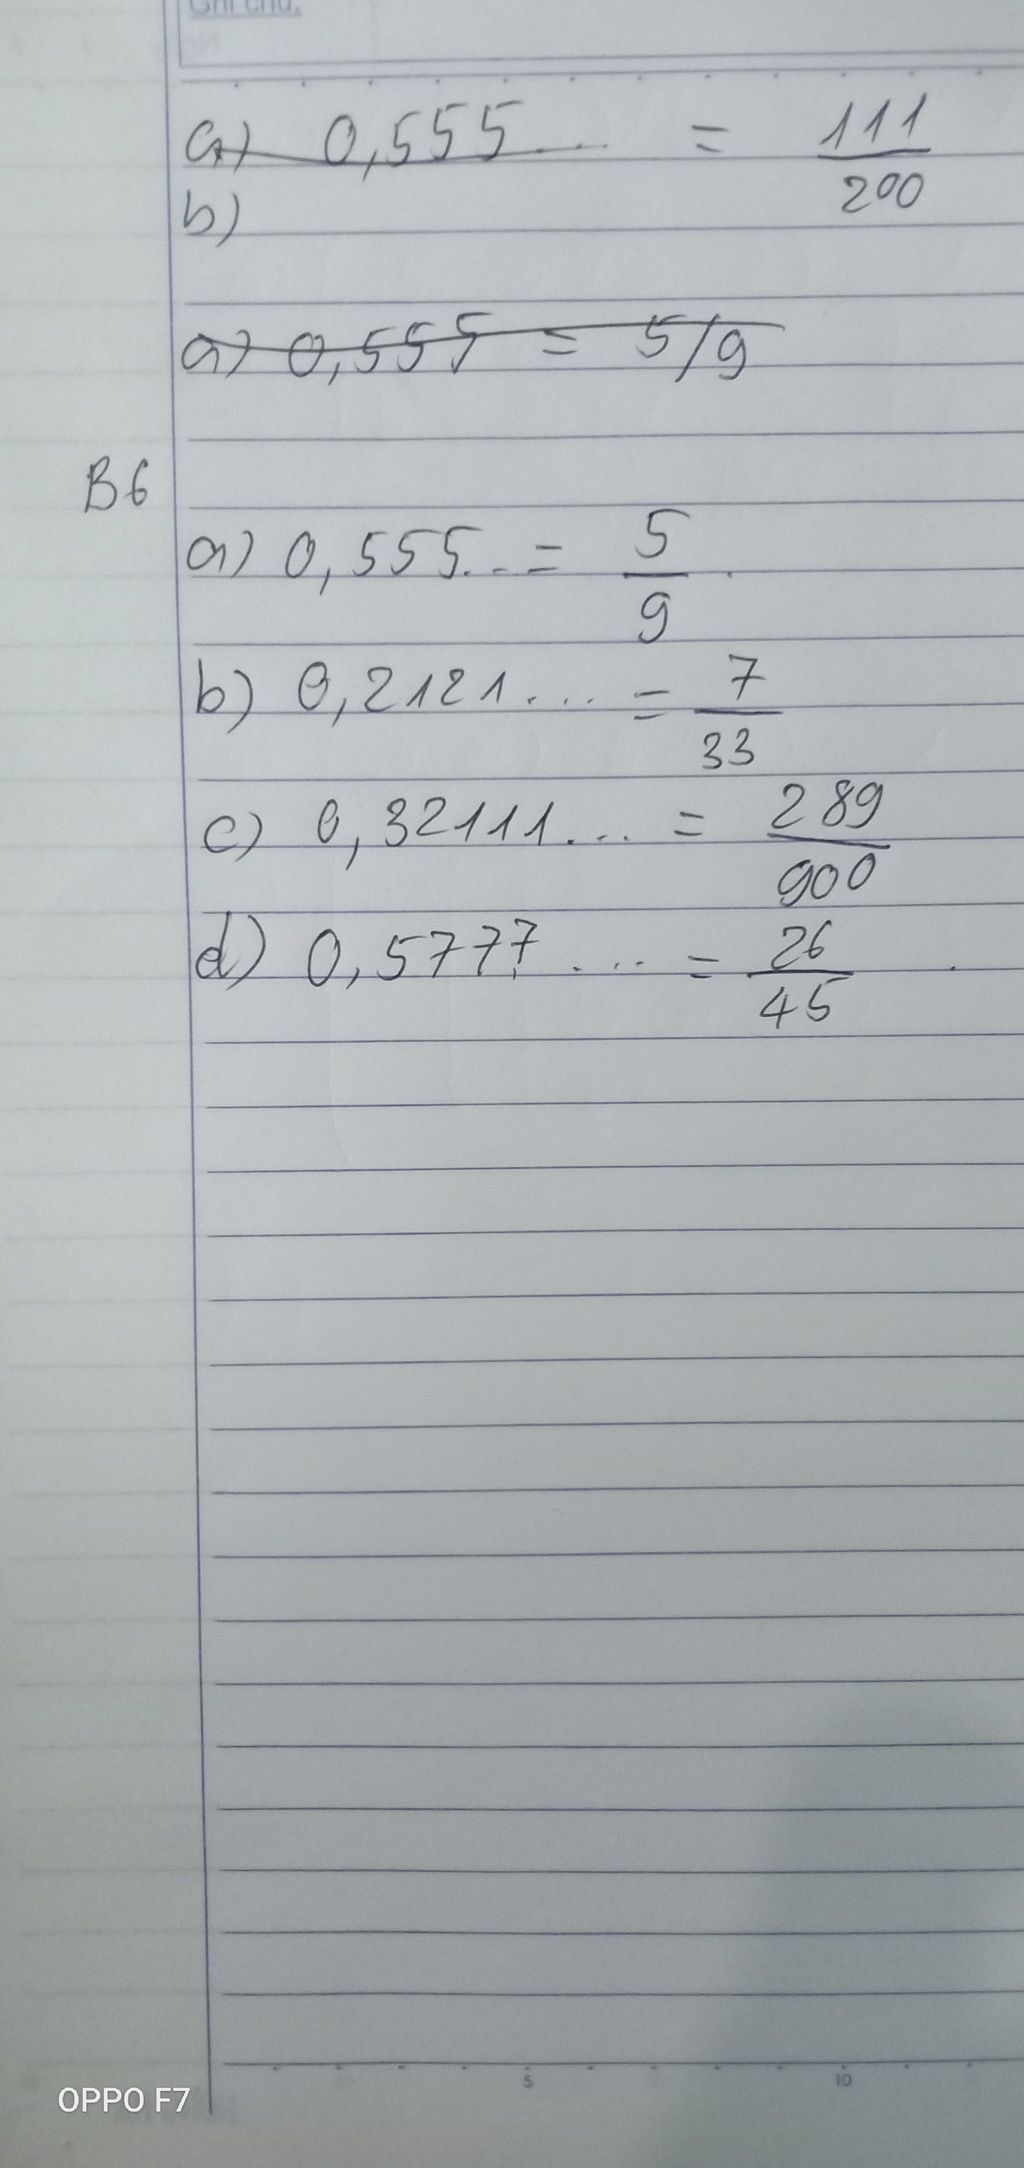 Ghi chú:
a) 0,555... = 111/200
b)
a) 0,555 = 5/9
B6
a) 0,555... = 5/9.
b) 0,2121.... = 7/33
c) 0,32111.... = 289/900
d) 0,5777.... = 26/45.
5 10
OPPO F7